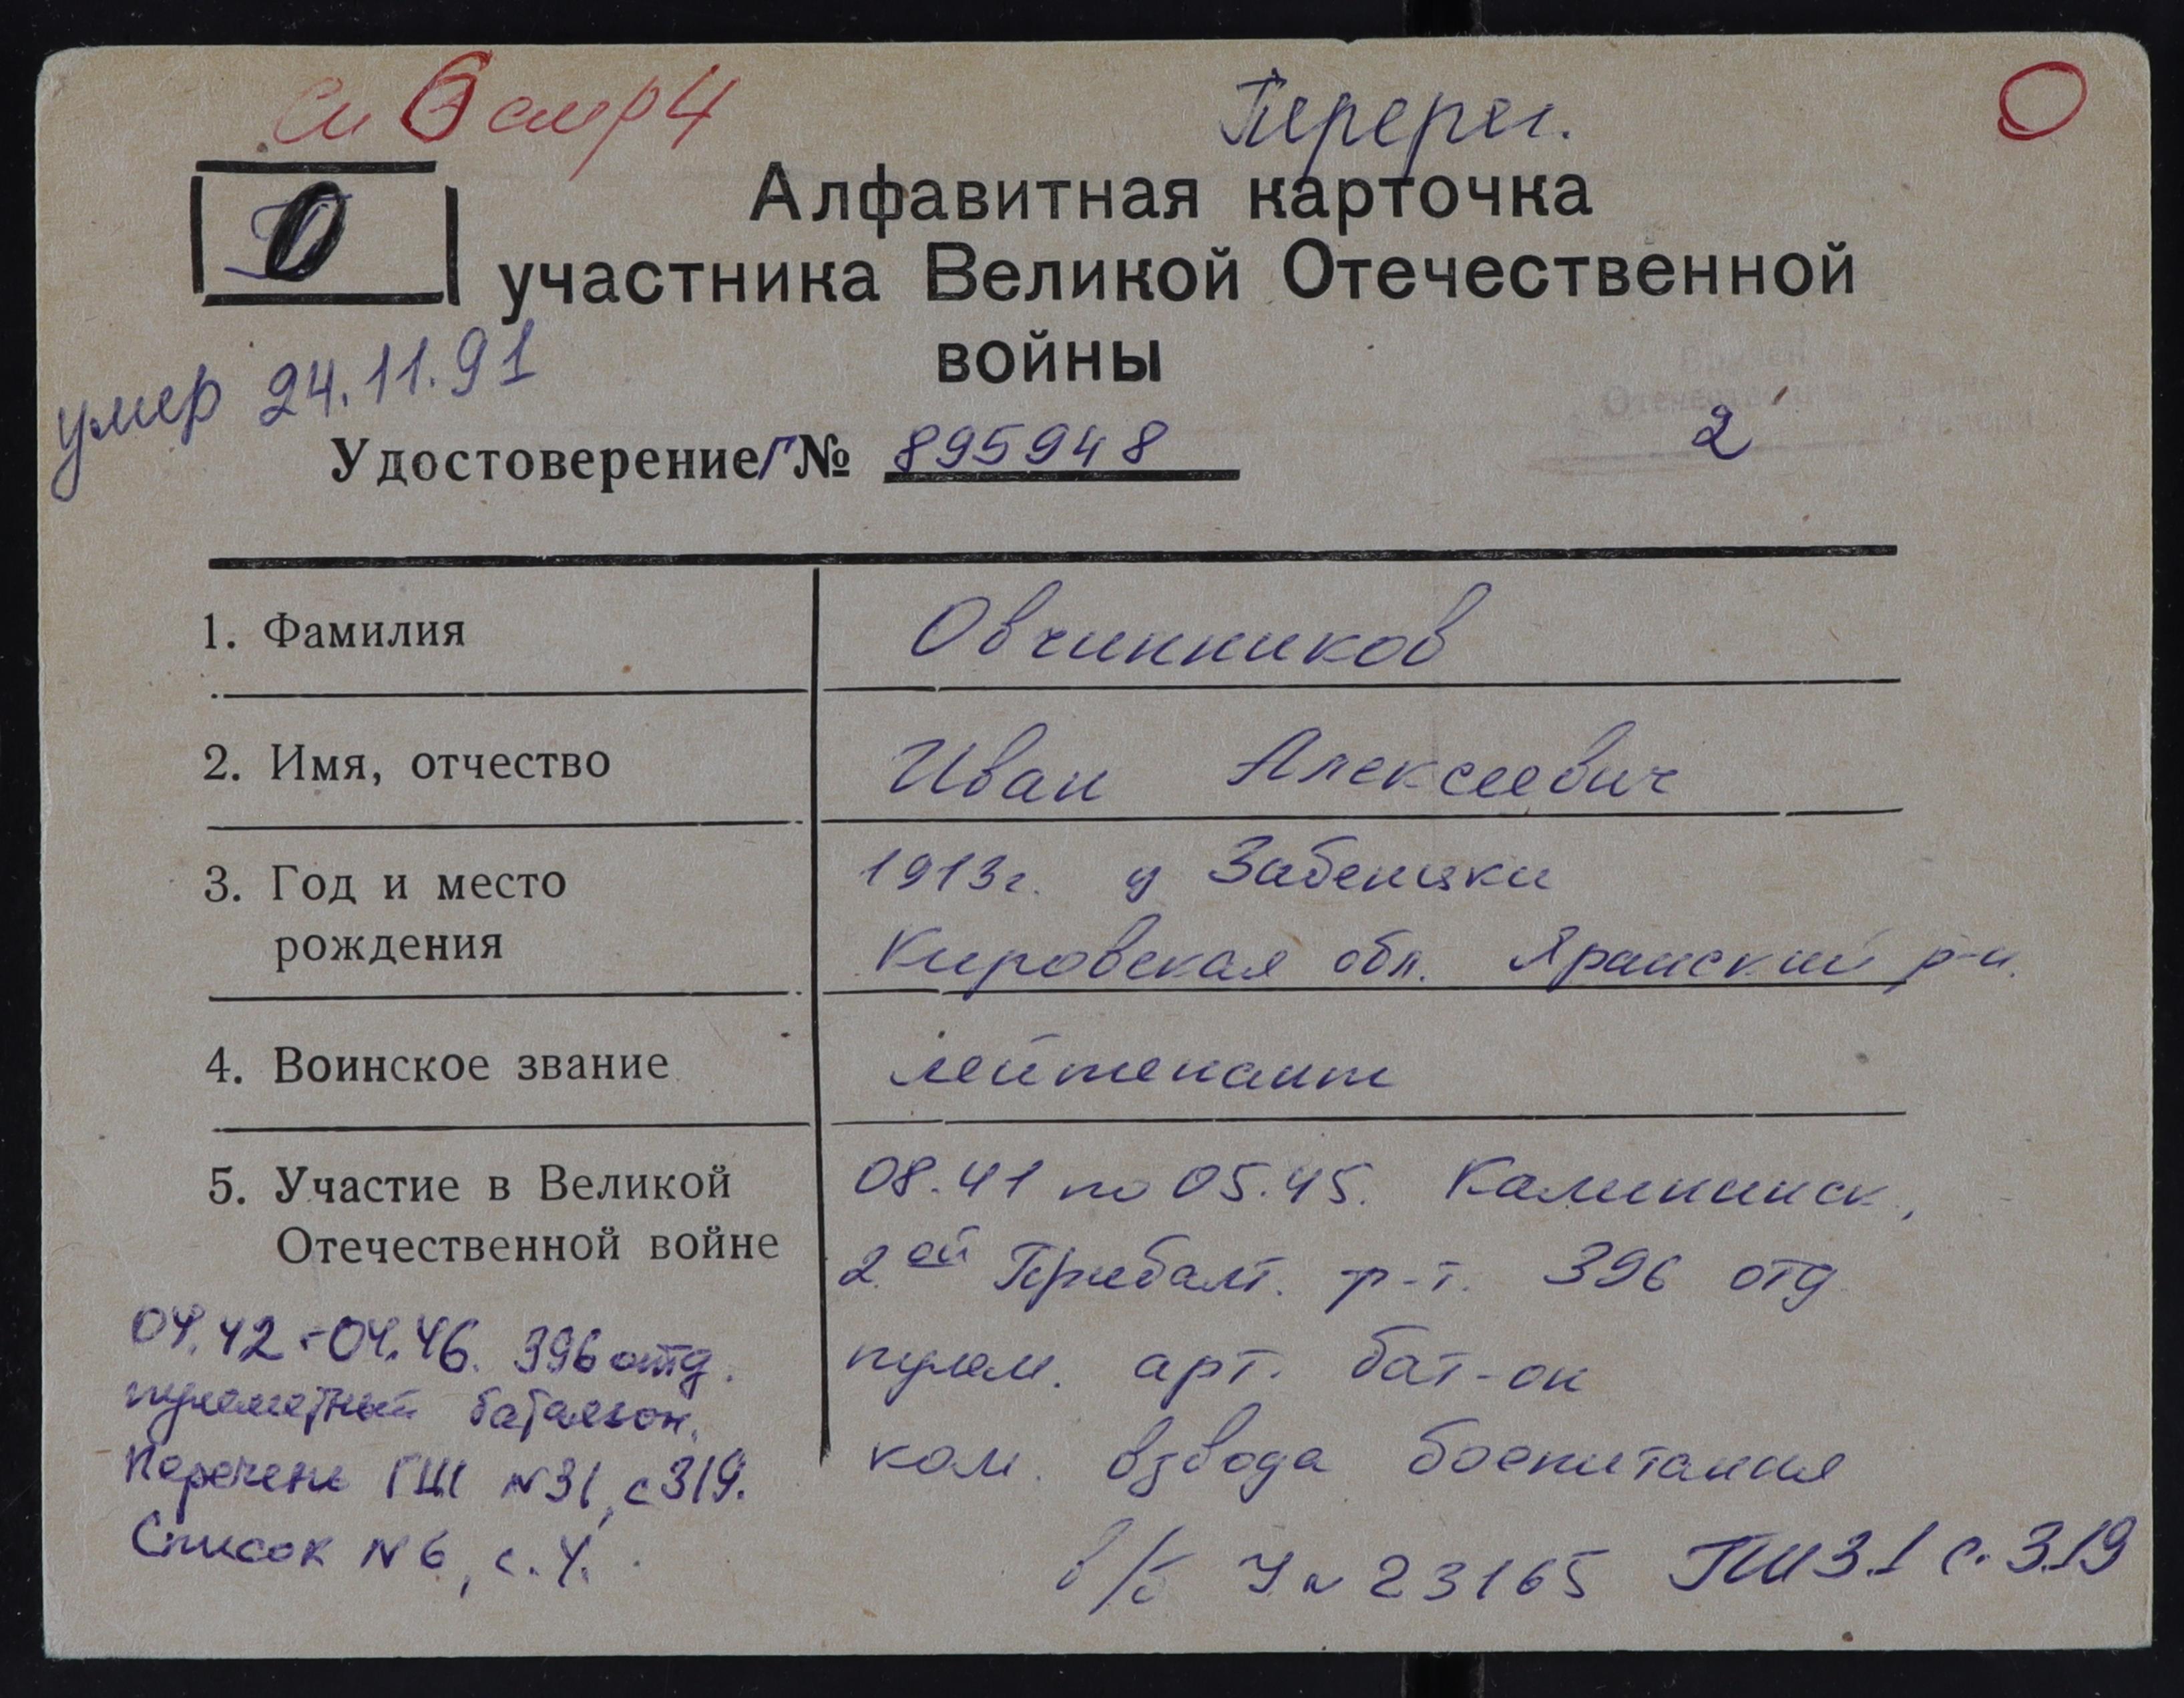 Сп 6 стр 4
Перерег.
О
Алфавитная карточка
участника Великой Отечественной
войны
умер 24.11.91
Удостоверение Г № 895948
2
1. Фамилия Овчинников
2. Имя, отчество Иван Алексеевич
3. Год и место 1913г.
рождения Кировская обл. Яранский р-н.
4. Воинское звание лейтенант
5. Участие в Великой 08.41 по 05.45. Калининск,
Отечественной войне 2ой Прибалт. ф-т. 396 отд
пулем. арт. бат-он
ком. взвода боепитания
04.42-04.46. 396 отд.
пулеметный батальон.
Перечень ГШ N31, с319.
Список N6, с.4.
в/б N 23165 ГШ 31 с. 319